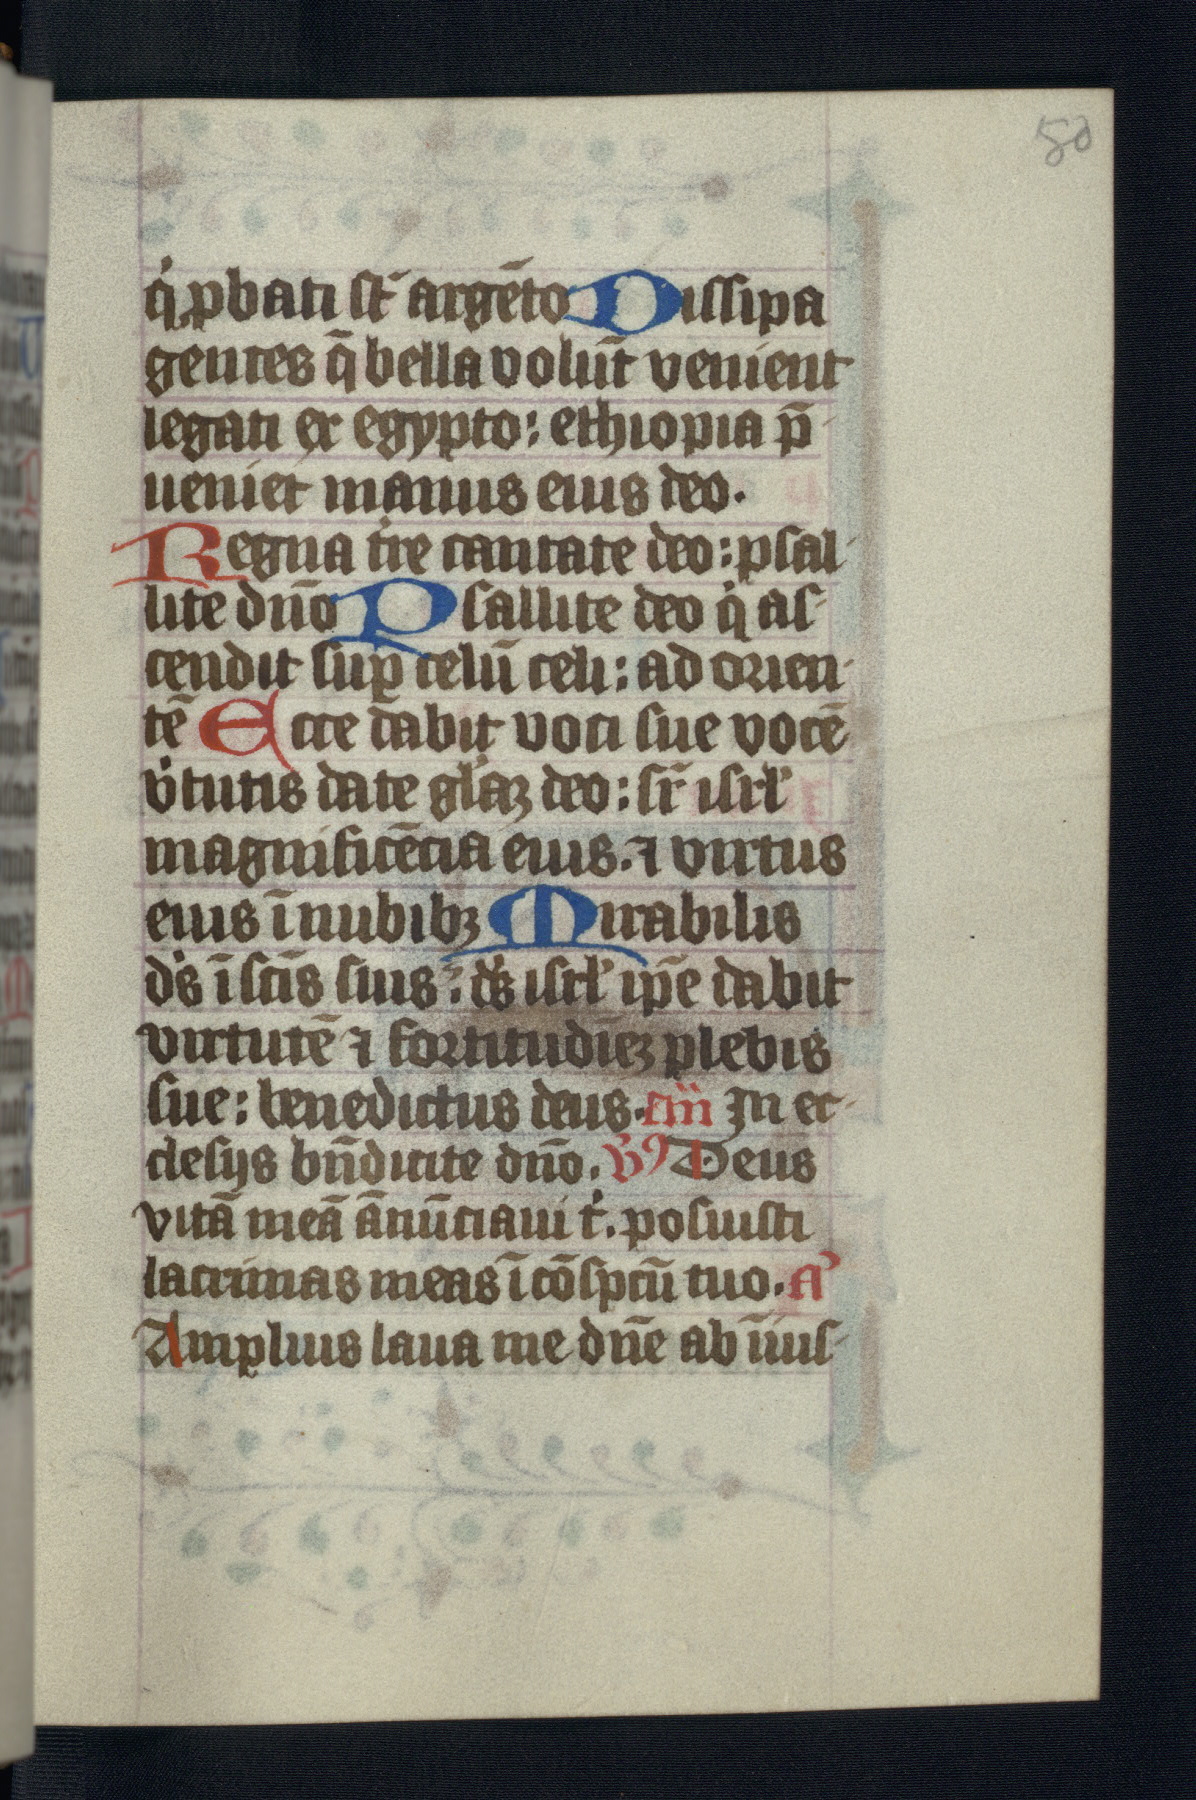 50
q̇ ꝓbati st̄ argēto Dissipa
gentes q̄ bella volūt venient
legati ex egypto: ethiopia p̄
ueniet manus eius deo.
Regna tr̄e cantate deo: psal
lite dn̄o Psallite deo q̇ as
cendit suꝑ celū celi: ad orien
tē Ecce dabit voci sue vocē
v̇tutis date gl'aꝫ deo: sr̄ isrl'
magnificēcia eius. ⁊ virtus
eius ī nubibꝫ Mirabilis
dṡ ī sc̄is suis: dṡ isrl' ip̄e dabit
virtutē ⁊ fortitudīeꝫ plebis
sue: benedictus deus. an̄ In ec
clesijs bn̄dicite dn̄o. vꝰ Deus
vitā meā ānūciaui ṫ. posuisti
lacrimas meas ī cōspcū tuo. a'
Amplius laua me dn̄e ab iīus